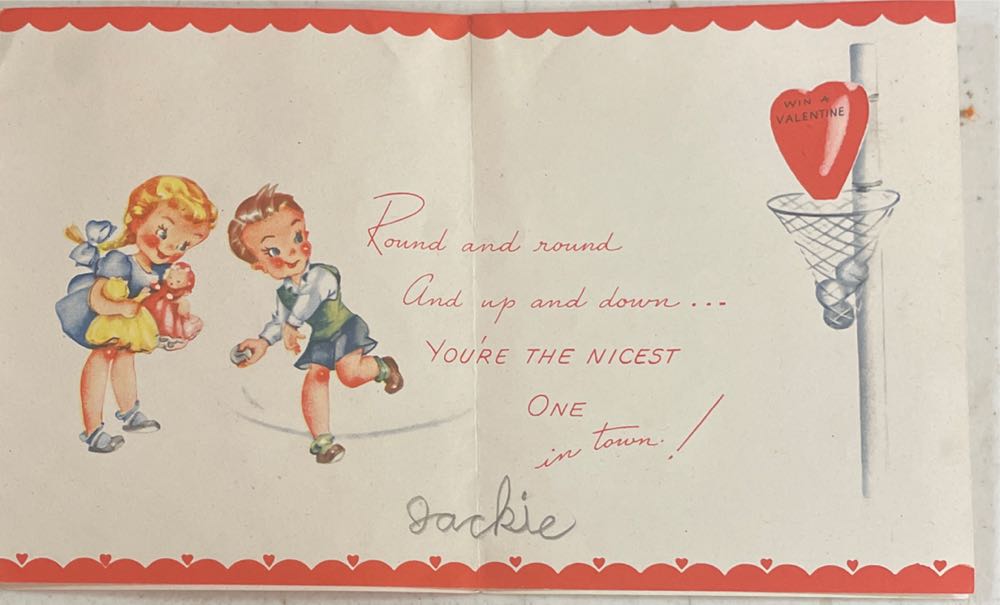 WIN A
VALENTINE
Round and round
And up and down...
YOU'RE THE NICEST
ONE
in town.!
Jackie